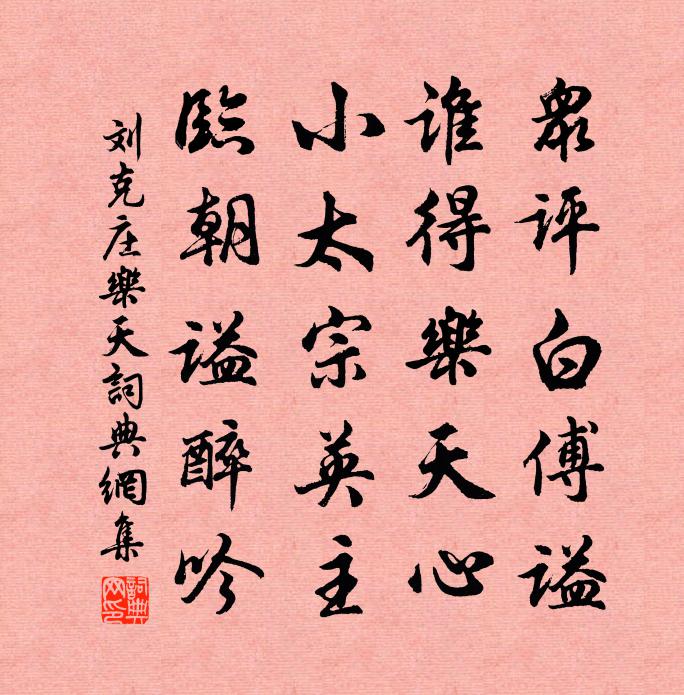 眾評白傅謚
誰得樂天心
小太宗英主
臨朝謚醉吟
刘克庄樂天詞典網集
詞典網印